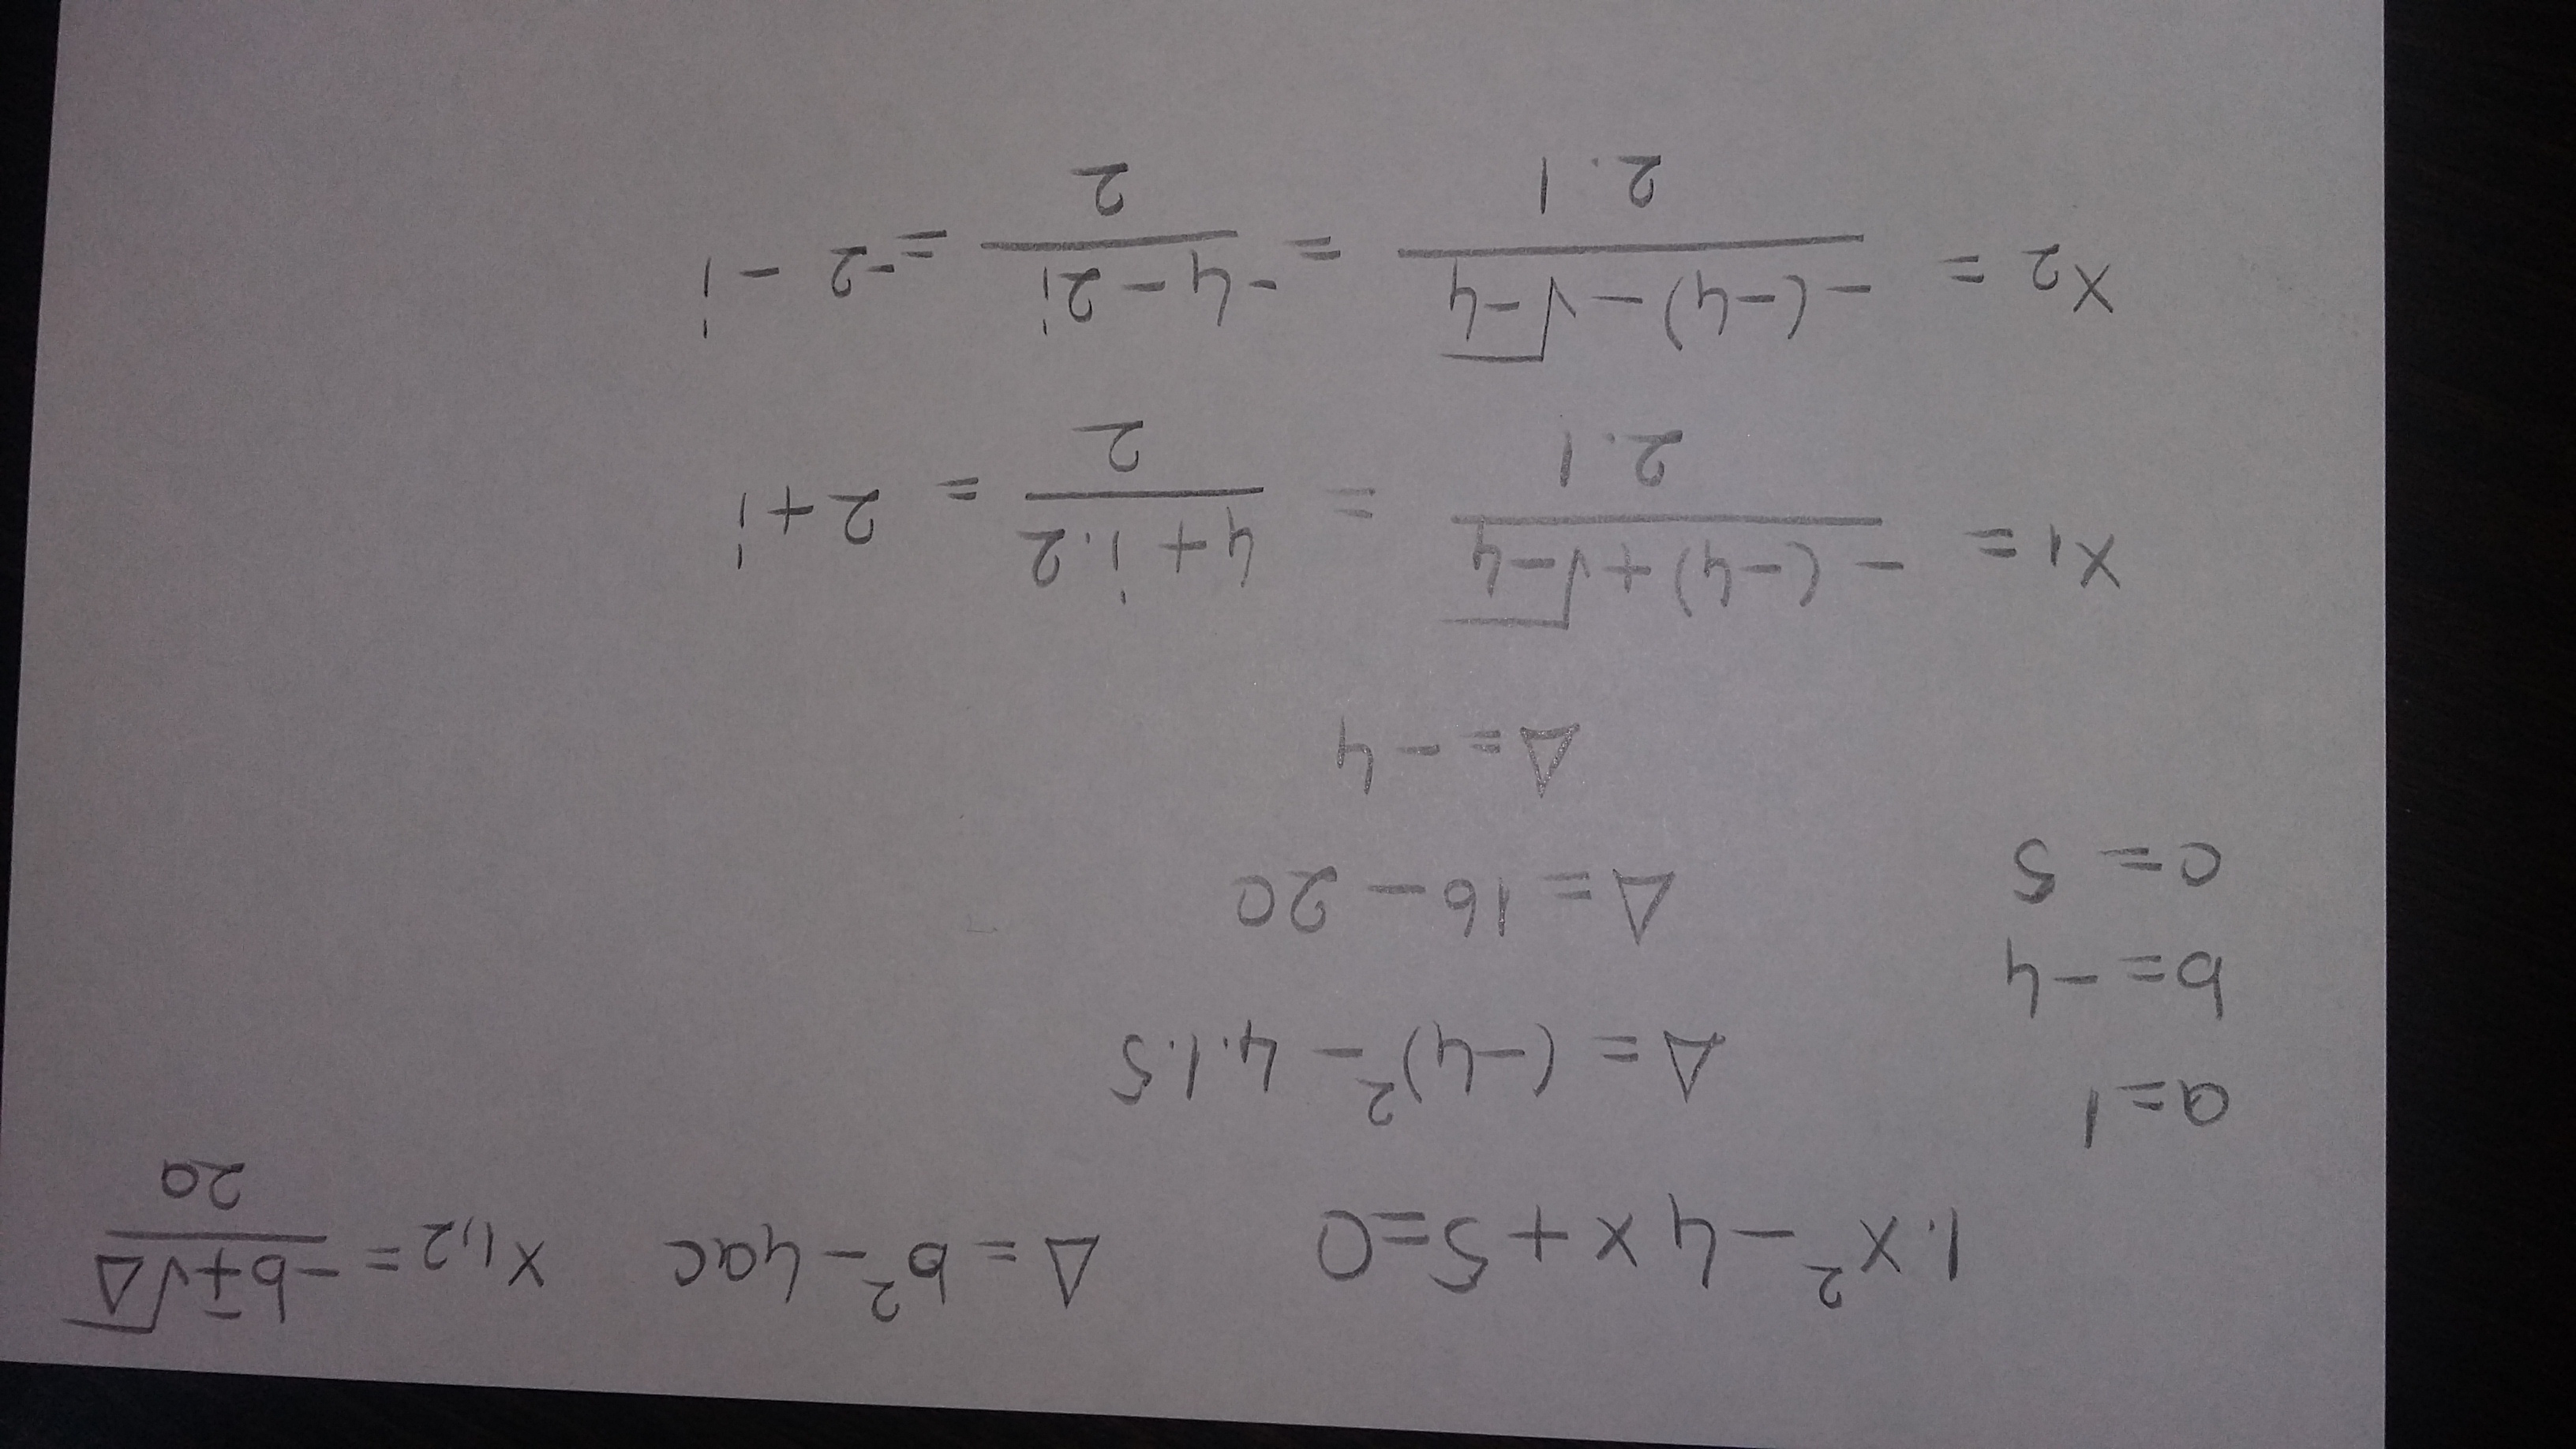 1.x² - 4x + 5 = 0    Δ = b² - 4ac    x1,2 = (-b ∓ √Δ) / 2a
a = 1    Δ = (-4)² - 4.1.5
b = -4    Δ = 16 - 20
c = 5    Δ = -4
x1 = (-(-4) + √-4) / 2.1 = (4 + i.2) / 2 = 2 + i
x2 = (-(-4) - √-4) / 2.1 = (-4 - 2i) / 2 = -2 - i